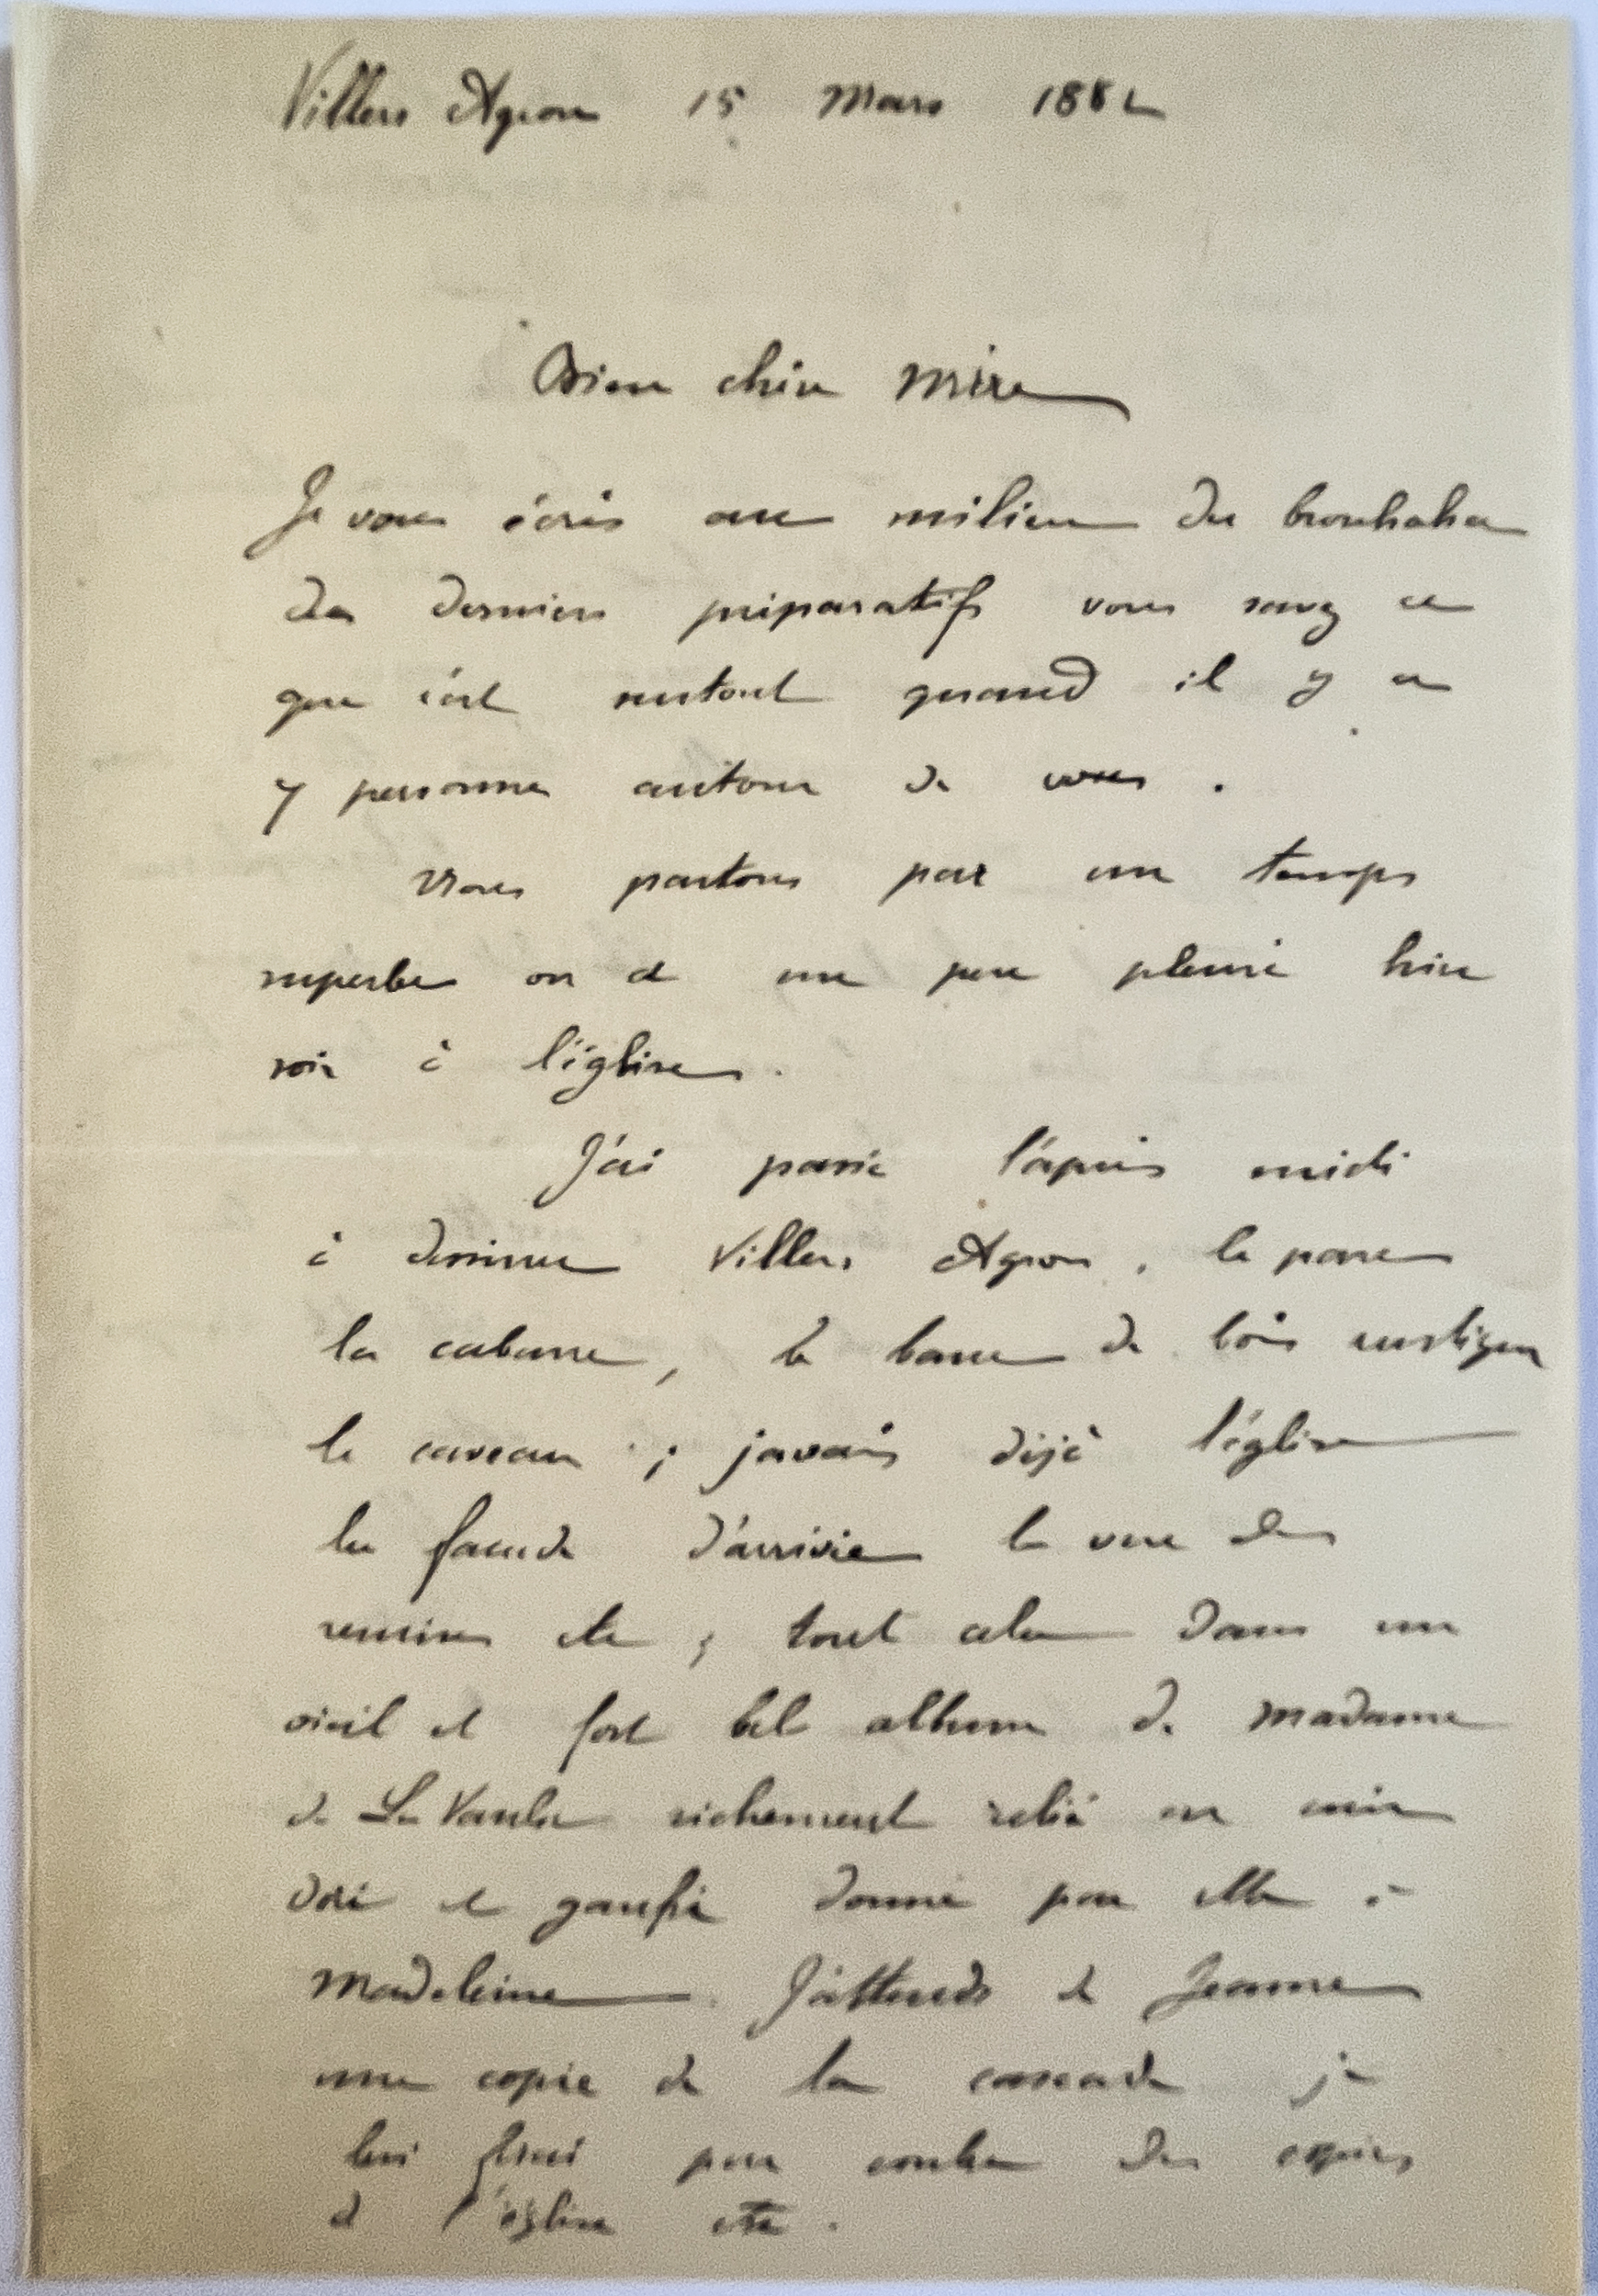 Villers Agron 15 Mars 1882
Bien chère Mère
Je vous écris au milieu du brouhaha
des derniers préparatifs vous savez ce
que c'est surtout quand il y a
7 personnes autour de vous.
Nous partons par un temps
superbe on a un peu pleuré hier
soir à l'église.
J'ai passé l'après midi
à dessiner Villers Agron, le parc
la cabane, le banc de bois rustique
le caveau ; javais déjà l'église
la facade d'arrivée la vue des
remises etc ; tout cela dans un
vieil et fort bel album de Madame
de La Vaulx richement relié en cuir
doré et gaufré donné par elle à
Madeleine. J'attends de Jeanne
une copie de la cascade je
lui ferai par contre des copies
de l'église etc.